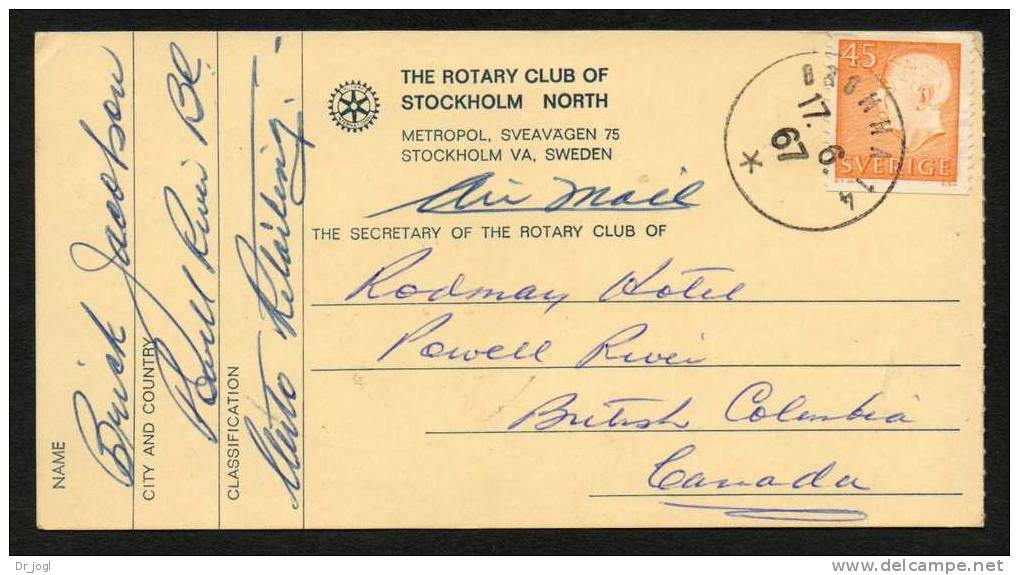 THE ROTARY CLUB OF
STOCKHOLM NORTH
METROPOL, SVEAVÄGEN 75
STOCKHOLM VA, SWEDEN
Air Mail
THE SECRETARY OF THE ROTARY CLUB OF
Rodmay Hotel
Powell River
British Columbia
Canada
NAME
Brick Jacobson
CITY AND COUNTRY
Powell River BC.
CLASSIFICATION
Auto Retailing
45
SVERIGE
17. 6. 74
67
Dr_jogl
www.delcampe.net